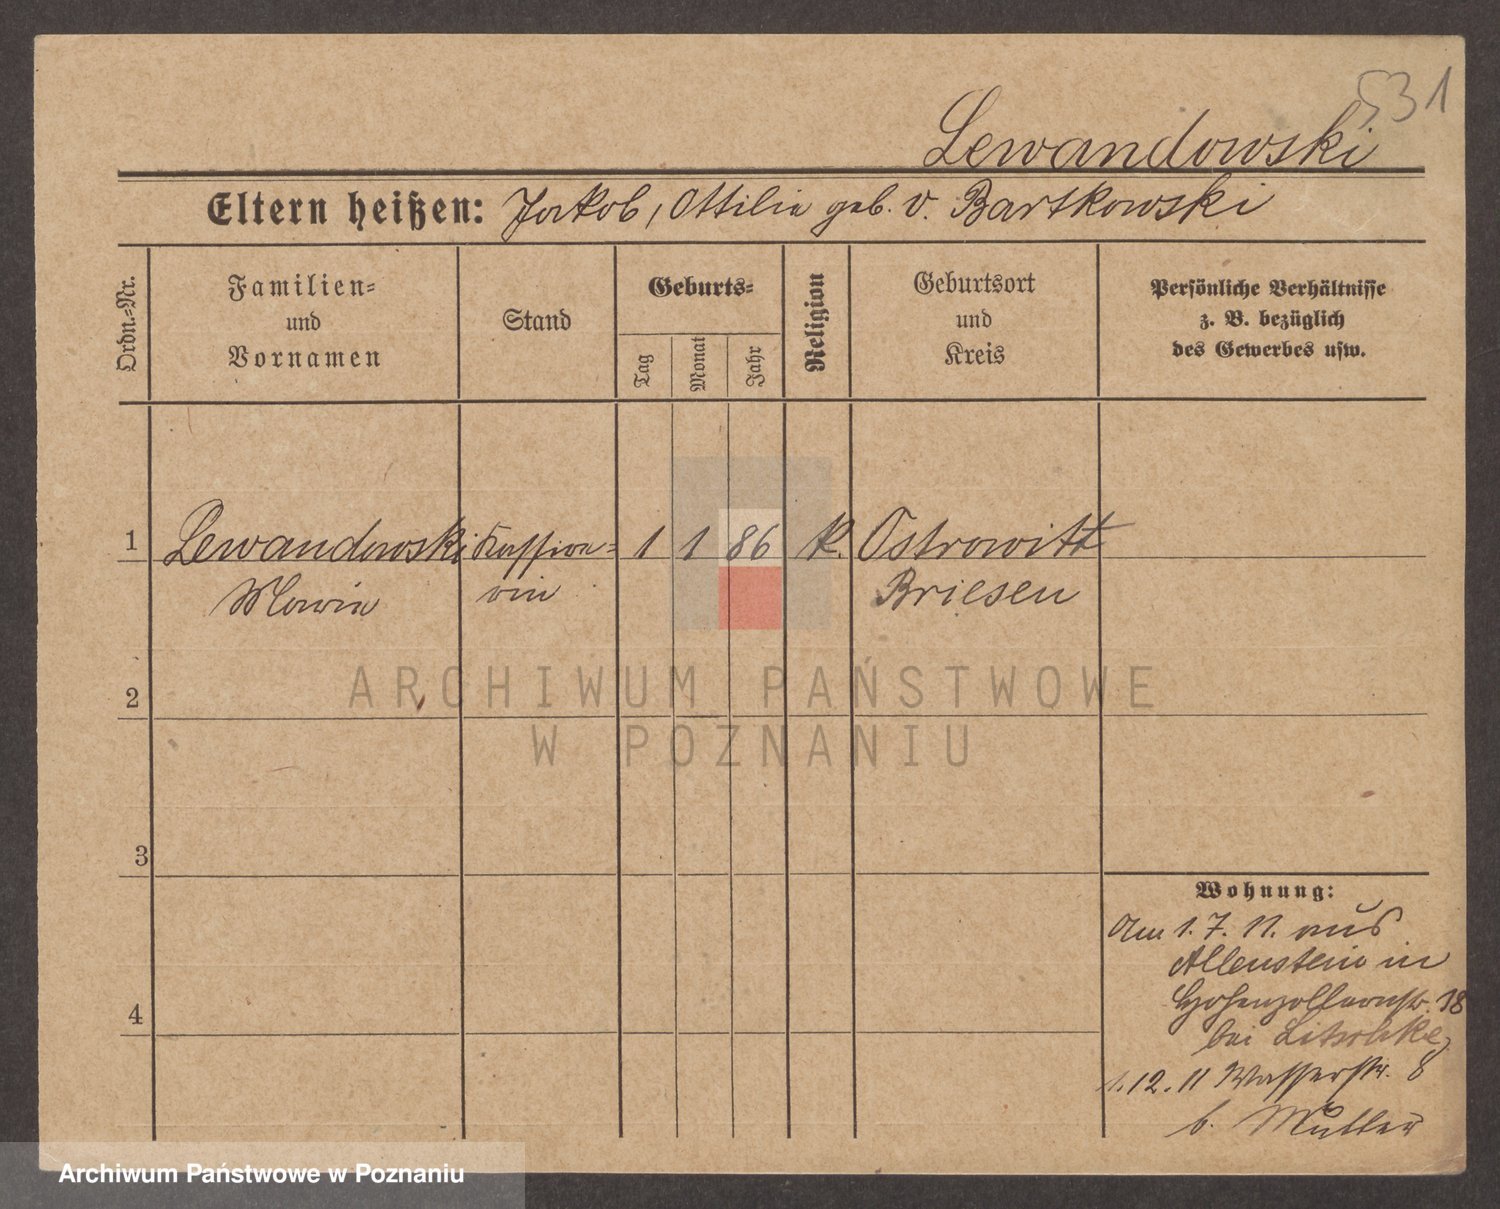 531
Lewandowski
Eltern heißen: Jakob, Ottilie geb. v. Bartkowski
Ordn.=Nr.
Familien=
und
Vornamen
Stand
Geburts=
Tag
Monat
Jahr
Religion
Geburtsort
und
Kreis
Persönliche Verhältnisse
z. B. bezüglich
des Gewerbes usw.
1 Lewandowski Kassiere= 1 1 86 k. Ostrowitt
Maria rin Briesen
ARCHIWUM PAŃSTWOWE
W POZNANIU
2
3
4
Wohnung:
Am 1. 7. 11. aus
Allenstein in
Hohenzollernstr. 18
bei Litschke
1. 12. 11 Wasserstr. 8
b. Müller
Archiwum Państwowe w Poznaniu